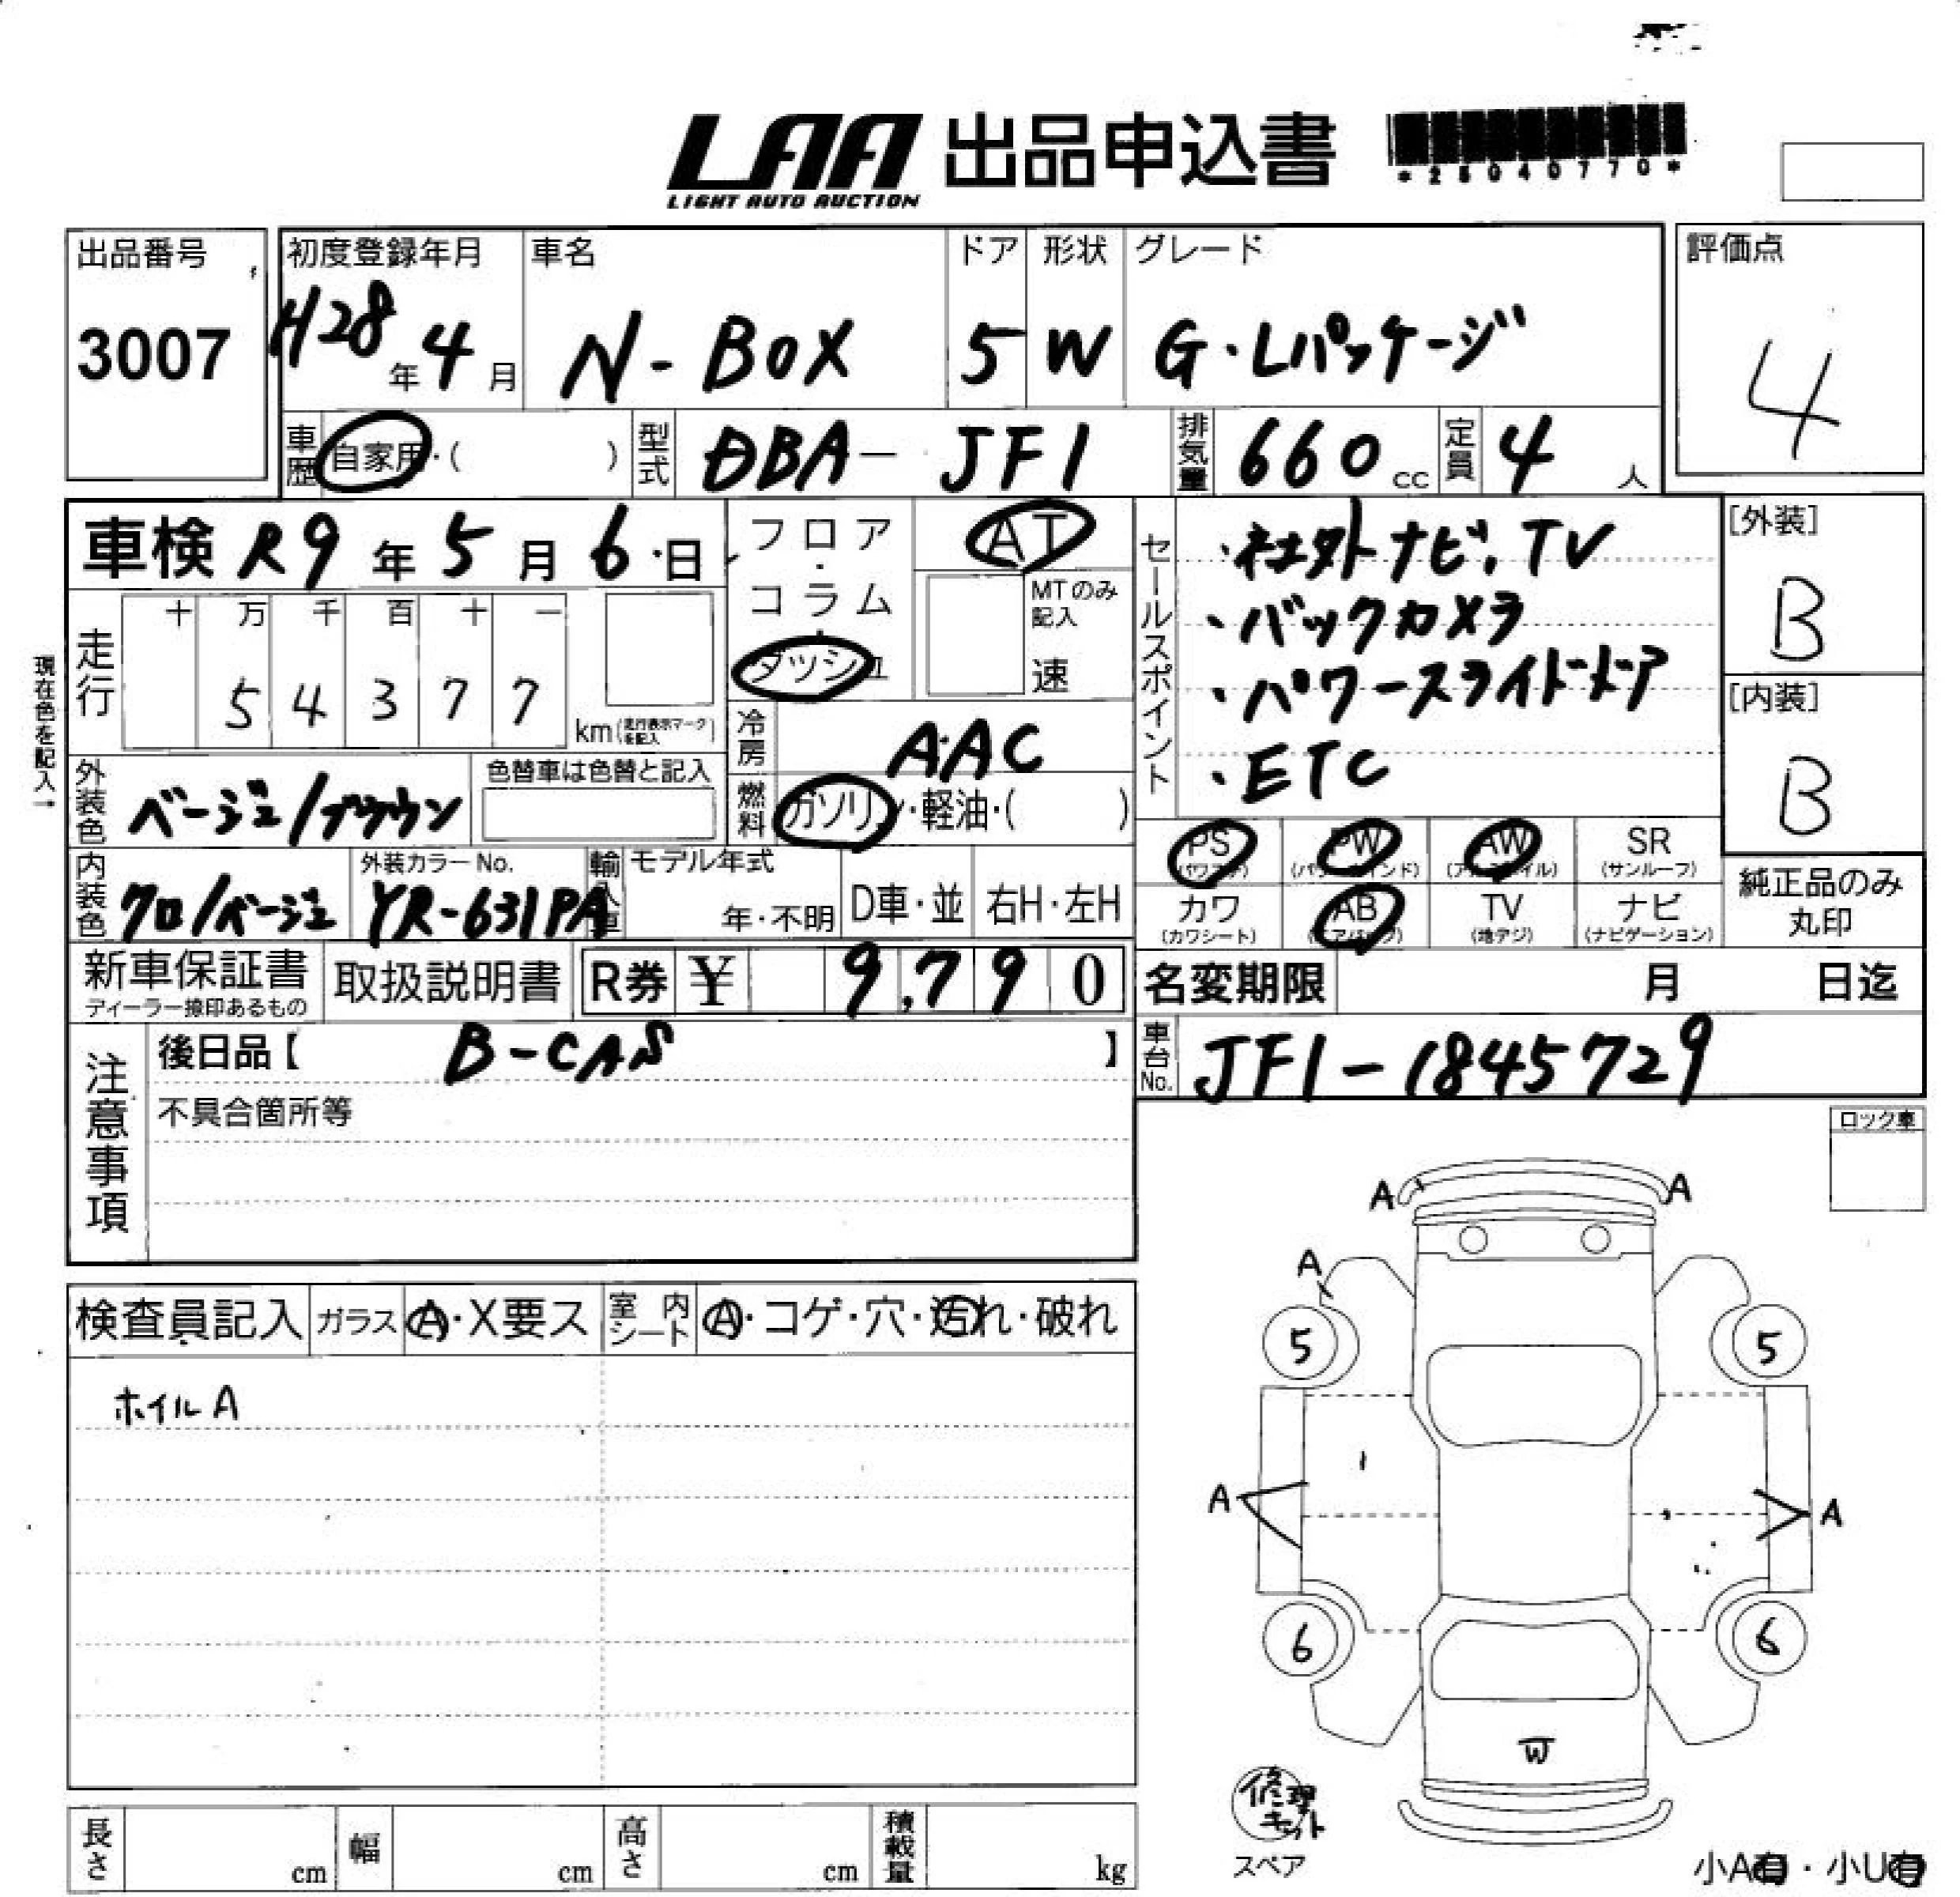 LAA 出品申込書
LIGHT AUTO AUCTION
*25040770*
出品番号
3007
初度登録年月
H28年4月
車名
N-BOX
ドア
5
形状
W
グレード
G・Lパッケージ
評価点
4
車歴 自家用・( )
型式 DBA-JF1
排気量 660cc
定員 4人
車検 R9年5月6日
フロア・コラム・ダッシュ
AT
MTのみ記入
速
セールスポイント
・社外ナビ、TV
・バックカメラ
・パワースライドドア
・ETC
[外装]
B
[内装]
B
現在色を記入→
走行 十 万 千 百 十 一
54377
km(走行表示マークを記入)
冷房 AAC
燃料 ガソリン・軽油・( )
外装色 ベージュ/ブラウン
色替車は色替と記入
内装色 クロ/ベージュ
外装カラーNo.
YR-631PA
輸入車
モデル年式
年・不明
D車・並
右H・左H
PS
PW
AW
SR
(サンルーフ)
カワ
(カワシート)
AB
TV
(地デジ)
ナビ
(ナビゲーション)
純正品のみ
丸印
新車保証書
ディーラー捺印あるもの
取扱説明書
R券 ¥ 9,790
名変期限 月 日迄
車台No. JF1-1845729
注意事項
後日品【 B-CAS 】
不具合箇所等
ロック車
検査員記入
ガラス A・X要ス
室内シート A・コゲ・穴・汚れ・破れ
ホイルA
A A
A
5 5
A A
6 6
W
修理キット
スペア
小A有・小U有
長さ cm
幅 cm
高さ cm
積載量 kg